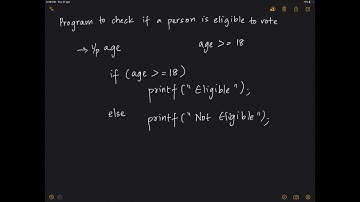 Program to check if a person is eligible to vote
→ i/p age
age >= 18
if (age >= 18)
printf("Eligible");
else
printf("Not Eligible");